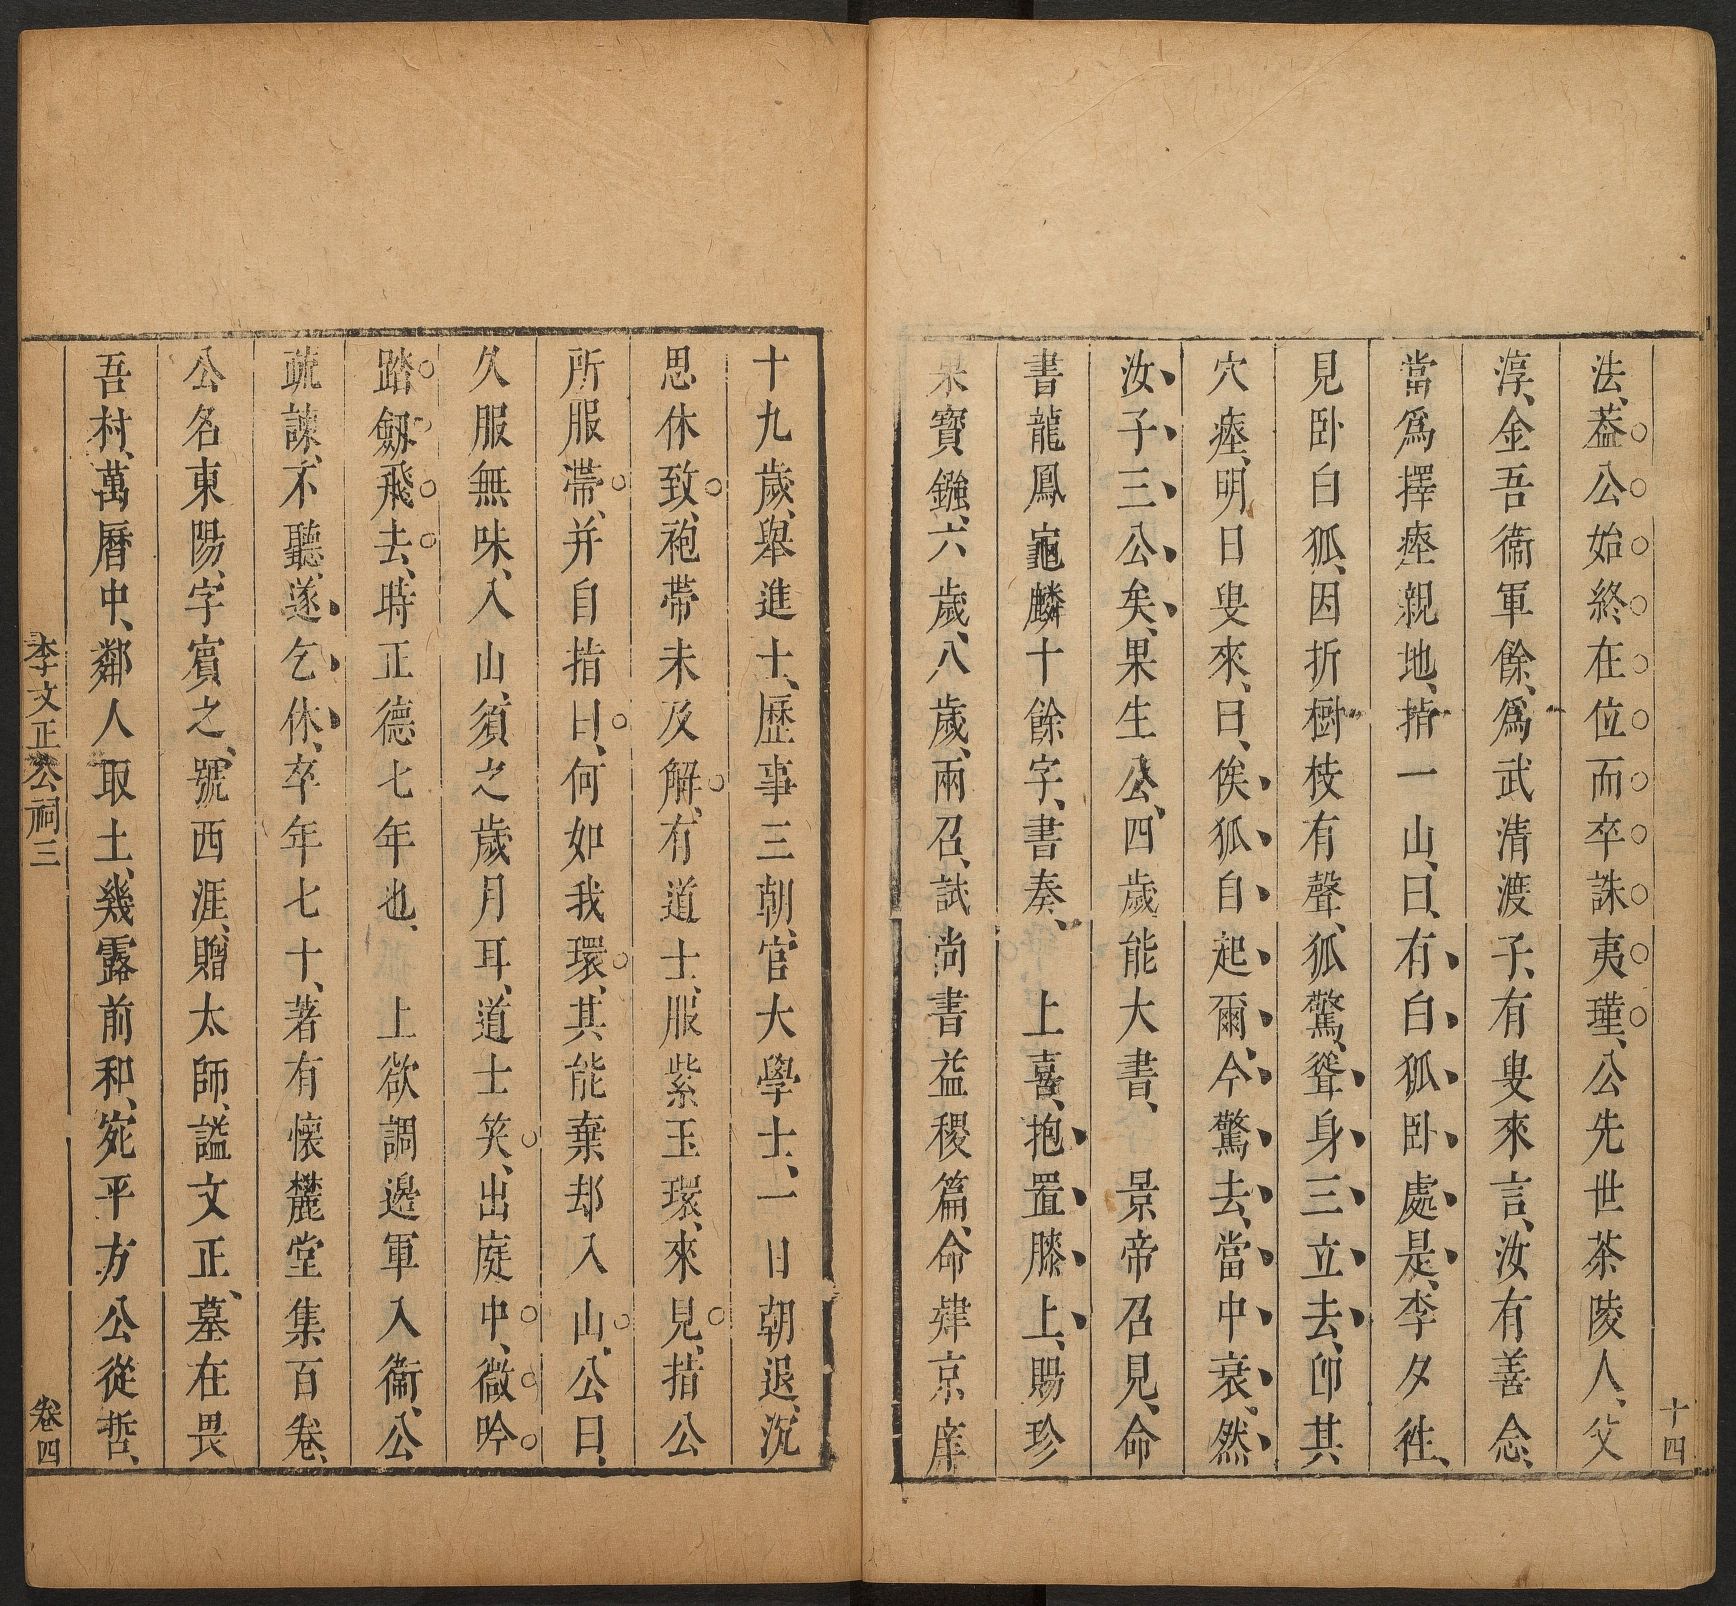 十四
法、葢公始終在位而卒誅夷瑾、公先世茶陵人、父
淳、金吾衛軍餘、爲武清渡子、有叟來言、汝有善念、
當爲擇瘞親地、指一山、曰、有白狐卧處是、李夕徃、
見卧白狐、因折樹枝有聲、狐驚、聳身三立去、卽其
穴瘞、明日叟來、曰、俟狐自起爾、今驚去、當中衰、然
汝子三公矣、果生公、四歲能大書、　景帝召見、命
書龍鳳龜麟十餘字、書奏、　上喜、抱置膝上、賜珍
果寶鏹、六歲、八歲、兩召、試尚書益稷篇、命肄京庠
十九歲、舉進士、歷事三朝、官大學士、一日朝退、沉
思休致、袍帶未及解、有道士、服紫玉環、來見、指公
所服帶、并自指曰、何如我環、其能棄却入山、公曰、
久服無味、入山、須之歲月耳、道士笑、出庭中、微吟
踏劔飛去、時正德七年也、　上欲調邊軍入衛、公
疏諫、不聽、遂乞休、卒年七十、著有懷麓堂集百卷、
公名東陽、字賓之、號西涯、贈太師、謚文正、墓在畏
吾村、萬曆中、鄰人取土、幾露前和、宛平方公從哲、
李文正公祠三
卷四